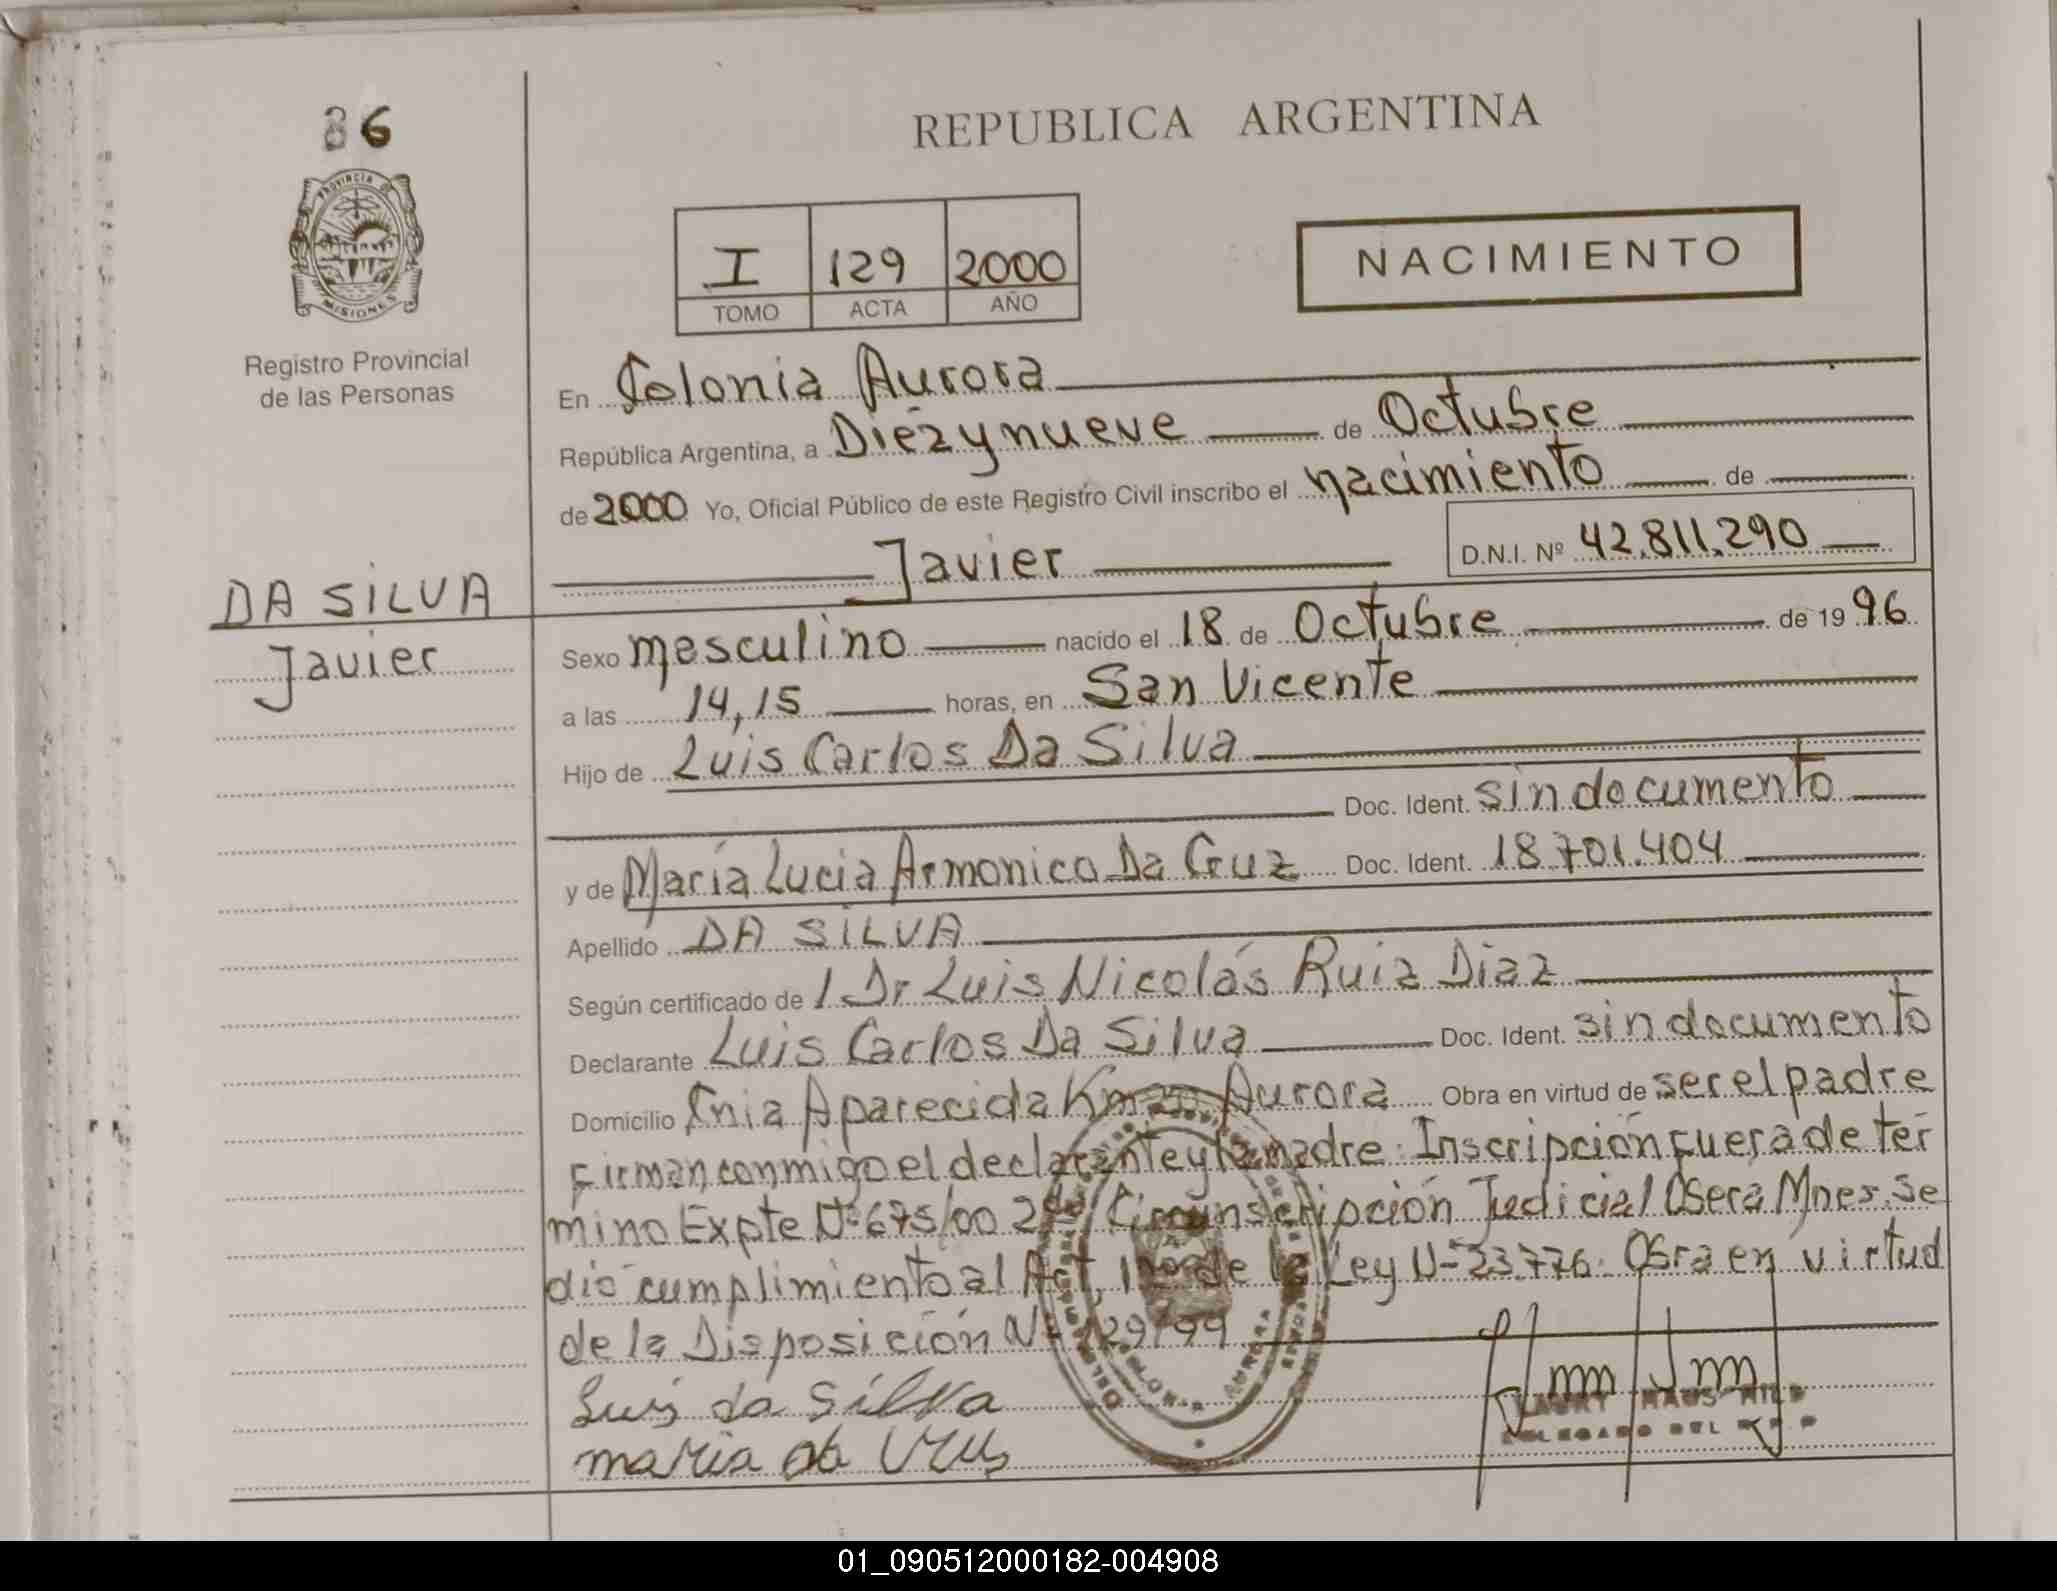 86
REPUBLICA ARGENTINA
PROVINCIA DE
MISIONES
I 129 2000
TOMO ACTA AÑO
NACIMIENTO
Registro Provincial
de las Personas
En Colonia Aurora
República Argentina, a Diezynueve de Octubre
de 2000 Yo, Oficial Público de este Registro Civil inscribo el nacimiento de
Javier D.N.I. Nº 42.811.290
DA SILVA
Javier
Sexo masculino nacido el 18 de Octubre de 19 96
a las 14,15 horas, en San Vicente
Hijo de Luis Carlos Da Silva
Doc. Ident. sin documento
y de María Lucia Armonico Da Cruz Doc. Ident. 18.701.404
Apellido DA SILVA
Según certificado de / Dr Luis Nicolás Ruiz Diaz
Declarante Luis Carlos Da Silva Doc. Ident. sin documento
Domicilio Cnia Aparecida Km Aurora Obra en virtud de ser el padre
Firman conmigo el declarante y la madre: Inscripción fuera de tér
mino Expte Nº 675/00 2da Circunscripción Judicial Obera Mnes. Se
dió cumplimiento al Art. de la Ley Nº 23.776. Obra en virtud
de la Disposición Nº 129/99
Luis da Silva
maria da
DELEGADO DEL
01_090512000182-004908